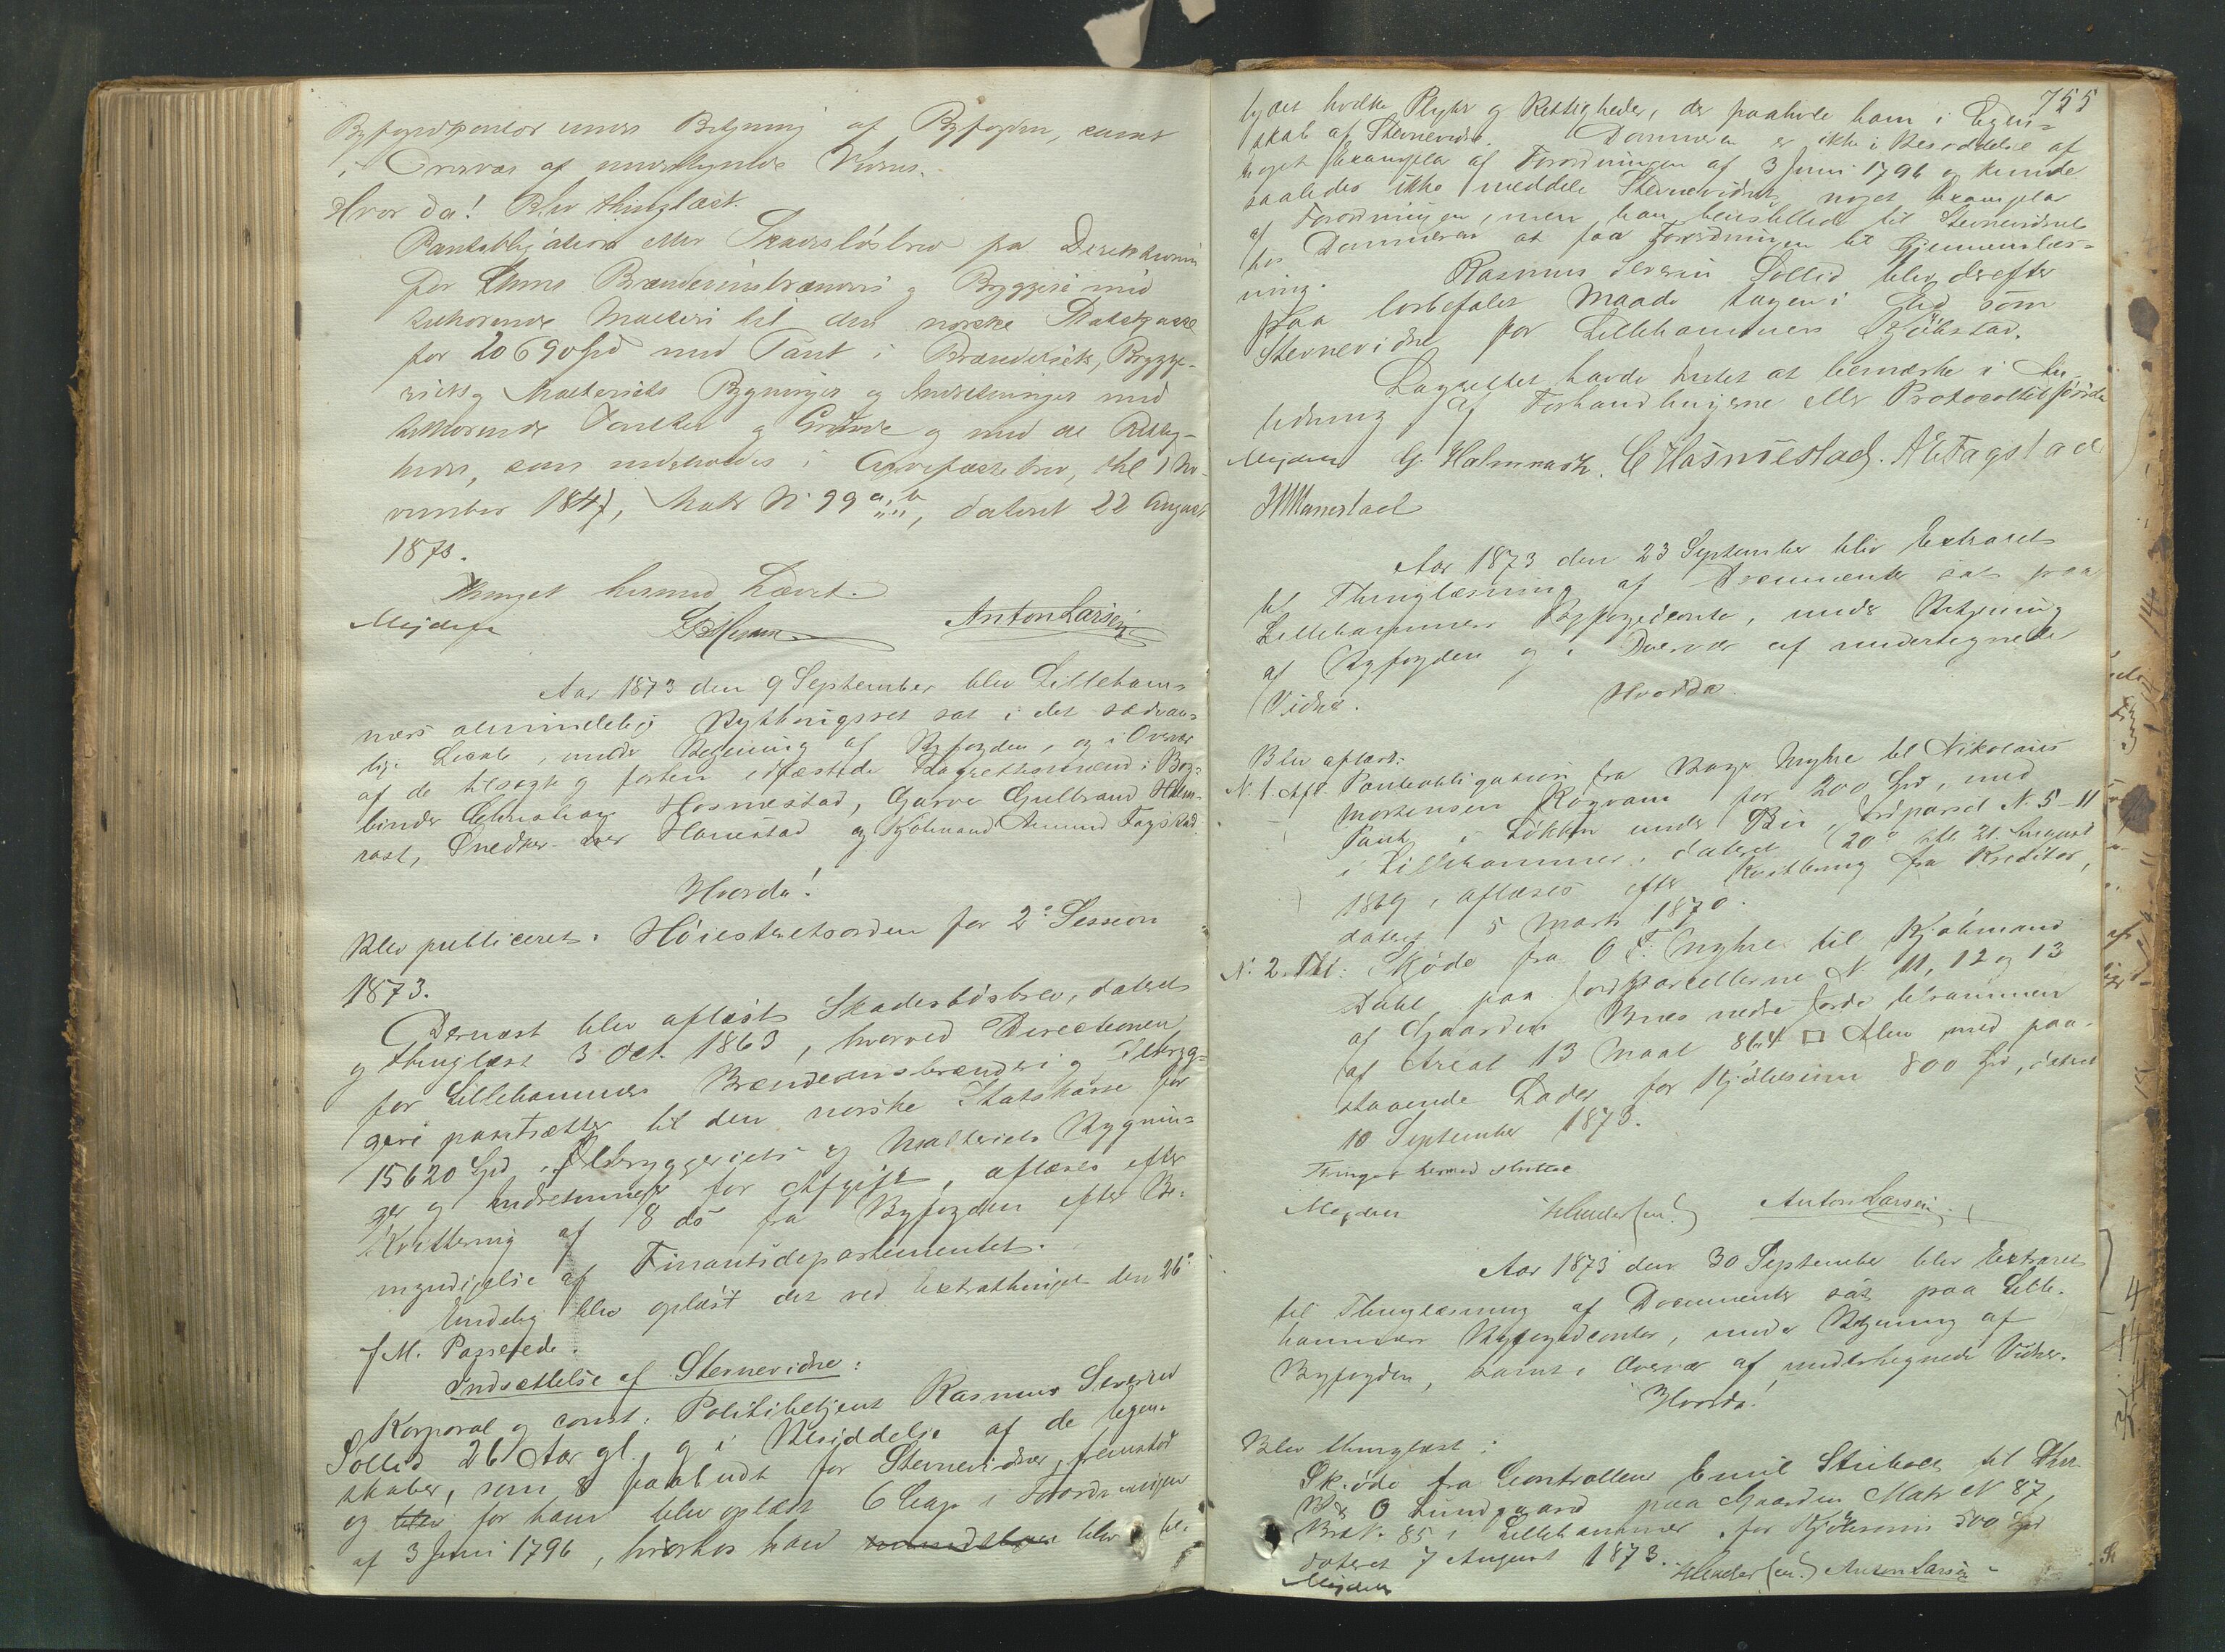 Byfogedcontor under Betjening af Byfogden, samt
i Overvær af undertegnede Vidner.
Hvor da! Blev thinglæst.
Pantobligation eller Skadesløsbrev fra Direktionen
for Brænderi og Bryggeri med
tilhørende Malteri til den norske Statskasse
for 20690 Spd med Pant i Brænderiets, Brygge-
riets og Malteriets Bygninger og Indretninger med
tilhørende Tomter og Grunde og med de Rettig-
heder, som indeholdes i Arvefæstebrev, thl. 1 No-
vember 1847, Matr N: 99 a, b, dateret 22 August
1873.
Thinget hermed hævet.
Mejdell Anton Larsen
Aar 1873 den 9 September blev Lilleham-
mers almindelig Bythingsret sat i det sædvan-
lige Locale, under Betjening af Byfogden, og i Overvær
af de tilsagte og forhen edfæstede Laugrettesmænd: Bog-
binder Christian Hosmestad, Garver Gulbrand Halm-
rast, Snedker Iver Hanestad og Kjøbmand Amund Fagstad.
Hvorda!
Blev publiceret: Høiesteretsorden for 2den Session
1873.
Dernæst blev aflæst Skadesløsbrev, dateret
og thinglæst 3 Oct. 1863, hvorved Directionen
for Lillehammer Brændevinsbrænderi og Ølbryg-
geri pantsætter til den norske Statskasse for
15620 Spd, Ølbryggeriets og Malteriets Bygnin-
ger og Indretninger for Afgift, aflæses efter
Kvittering af 8 ds fra Byfogden efter Be-
myndigelse af Finantsdepartementet.
Endelig blev oplæst det ved Extrathinget den 26de
f. M. Passerede.
Indsættelse af Stevnevidne:
Korporal og const: Politibetjent Rasmus Severin
Sollid 26 Aar gl., og i Besiddelse af de Egen-
skaber, som er paabudt for Stevnevidner, fremstod
og blev for ham blev oplæst 6 Cap. i Forordningen
af 3 Juni 1796, hvorhos han blev be-
755
tydet hvilke Pligter og Rettigheder, der paahvile ham i Egen-
skab af Stevnevidne. Dommeren er ikke i Besiddelse af
noget Exemplar af Forordningen af 3 Juni 1796 og kunde
saaledes ikke meddele Stevnevidnet noget Exemplar
af Forordningen, men han henstillede til Stevnevidnet
hos Dommeren at faa Forordningen til Gjennemlæs-
ning.
Rasmus Severin Sollid blev derefter
paa lovbefalet Maade tagen i Ed som
Stevnevidne for Lillehammers Kjøbstad.
Lagrettet havde Intet at bemærke i An-
ledning af Forhandlingerne eller Protocoltilførselen
Mejdell G. Halmrast. C Hosmestad. A E Fagstad
Hanestad
Aar 1873 den 23 September blev Extraret
til Thinglæsning af Documenter sat paa
Lillehammers Byfogedcontor, under Betjening
af Byfogden og i Overvær af undertegnede
Vidner.
Hvorda
Blev aflæst:
N. 1. Afl. Pantobligation fra Myhre til Nikolaus
Mortensen Rogvam for 200 Spd, med
Pant i Løkken under Bui, Jordparcel N. 5-11
i Lillehammer, dateret 20de thl. 21. August
1869, aflæses efter Kvittering fra Kreditor,
dateret 5 Marts 1870.
N. 2. Thl: Skjøde fra O. T. Myhre til Kjøbmand
Dahl paa Jordparcellerne N. 11, 12 og 13
af Gaarden Bues nedre Jorde tilsammen
af Areal 13 Maal 864 □ Alen med paa-
staaende Lader for Kjøbesum 800 Spd, dateret
10 September 1873.
Thinget hermed sluttet
Mejdell Anton Larsen
Aar 1873 den 30 September blev Extraret
til Thinglæsning af Documenter sat paa Lille-
hammers Byfogedcontor, under Betjening af
Byfogden, samt i Overvær af undertegnede Vidner.
Hvorda!
Blev thinglæst:
Skjøde fra Controlleur Emil Stribolt til
O Lundgaard paa Gaarden Matr N 87,
Br N. 85 i Lillehammer, for Kjøbesum 500 Spd
dateret 7 August 1873.
Mejdell Anton Larsen